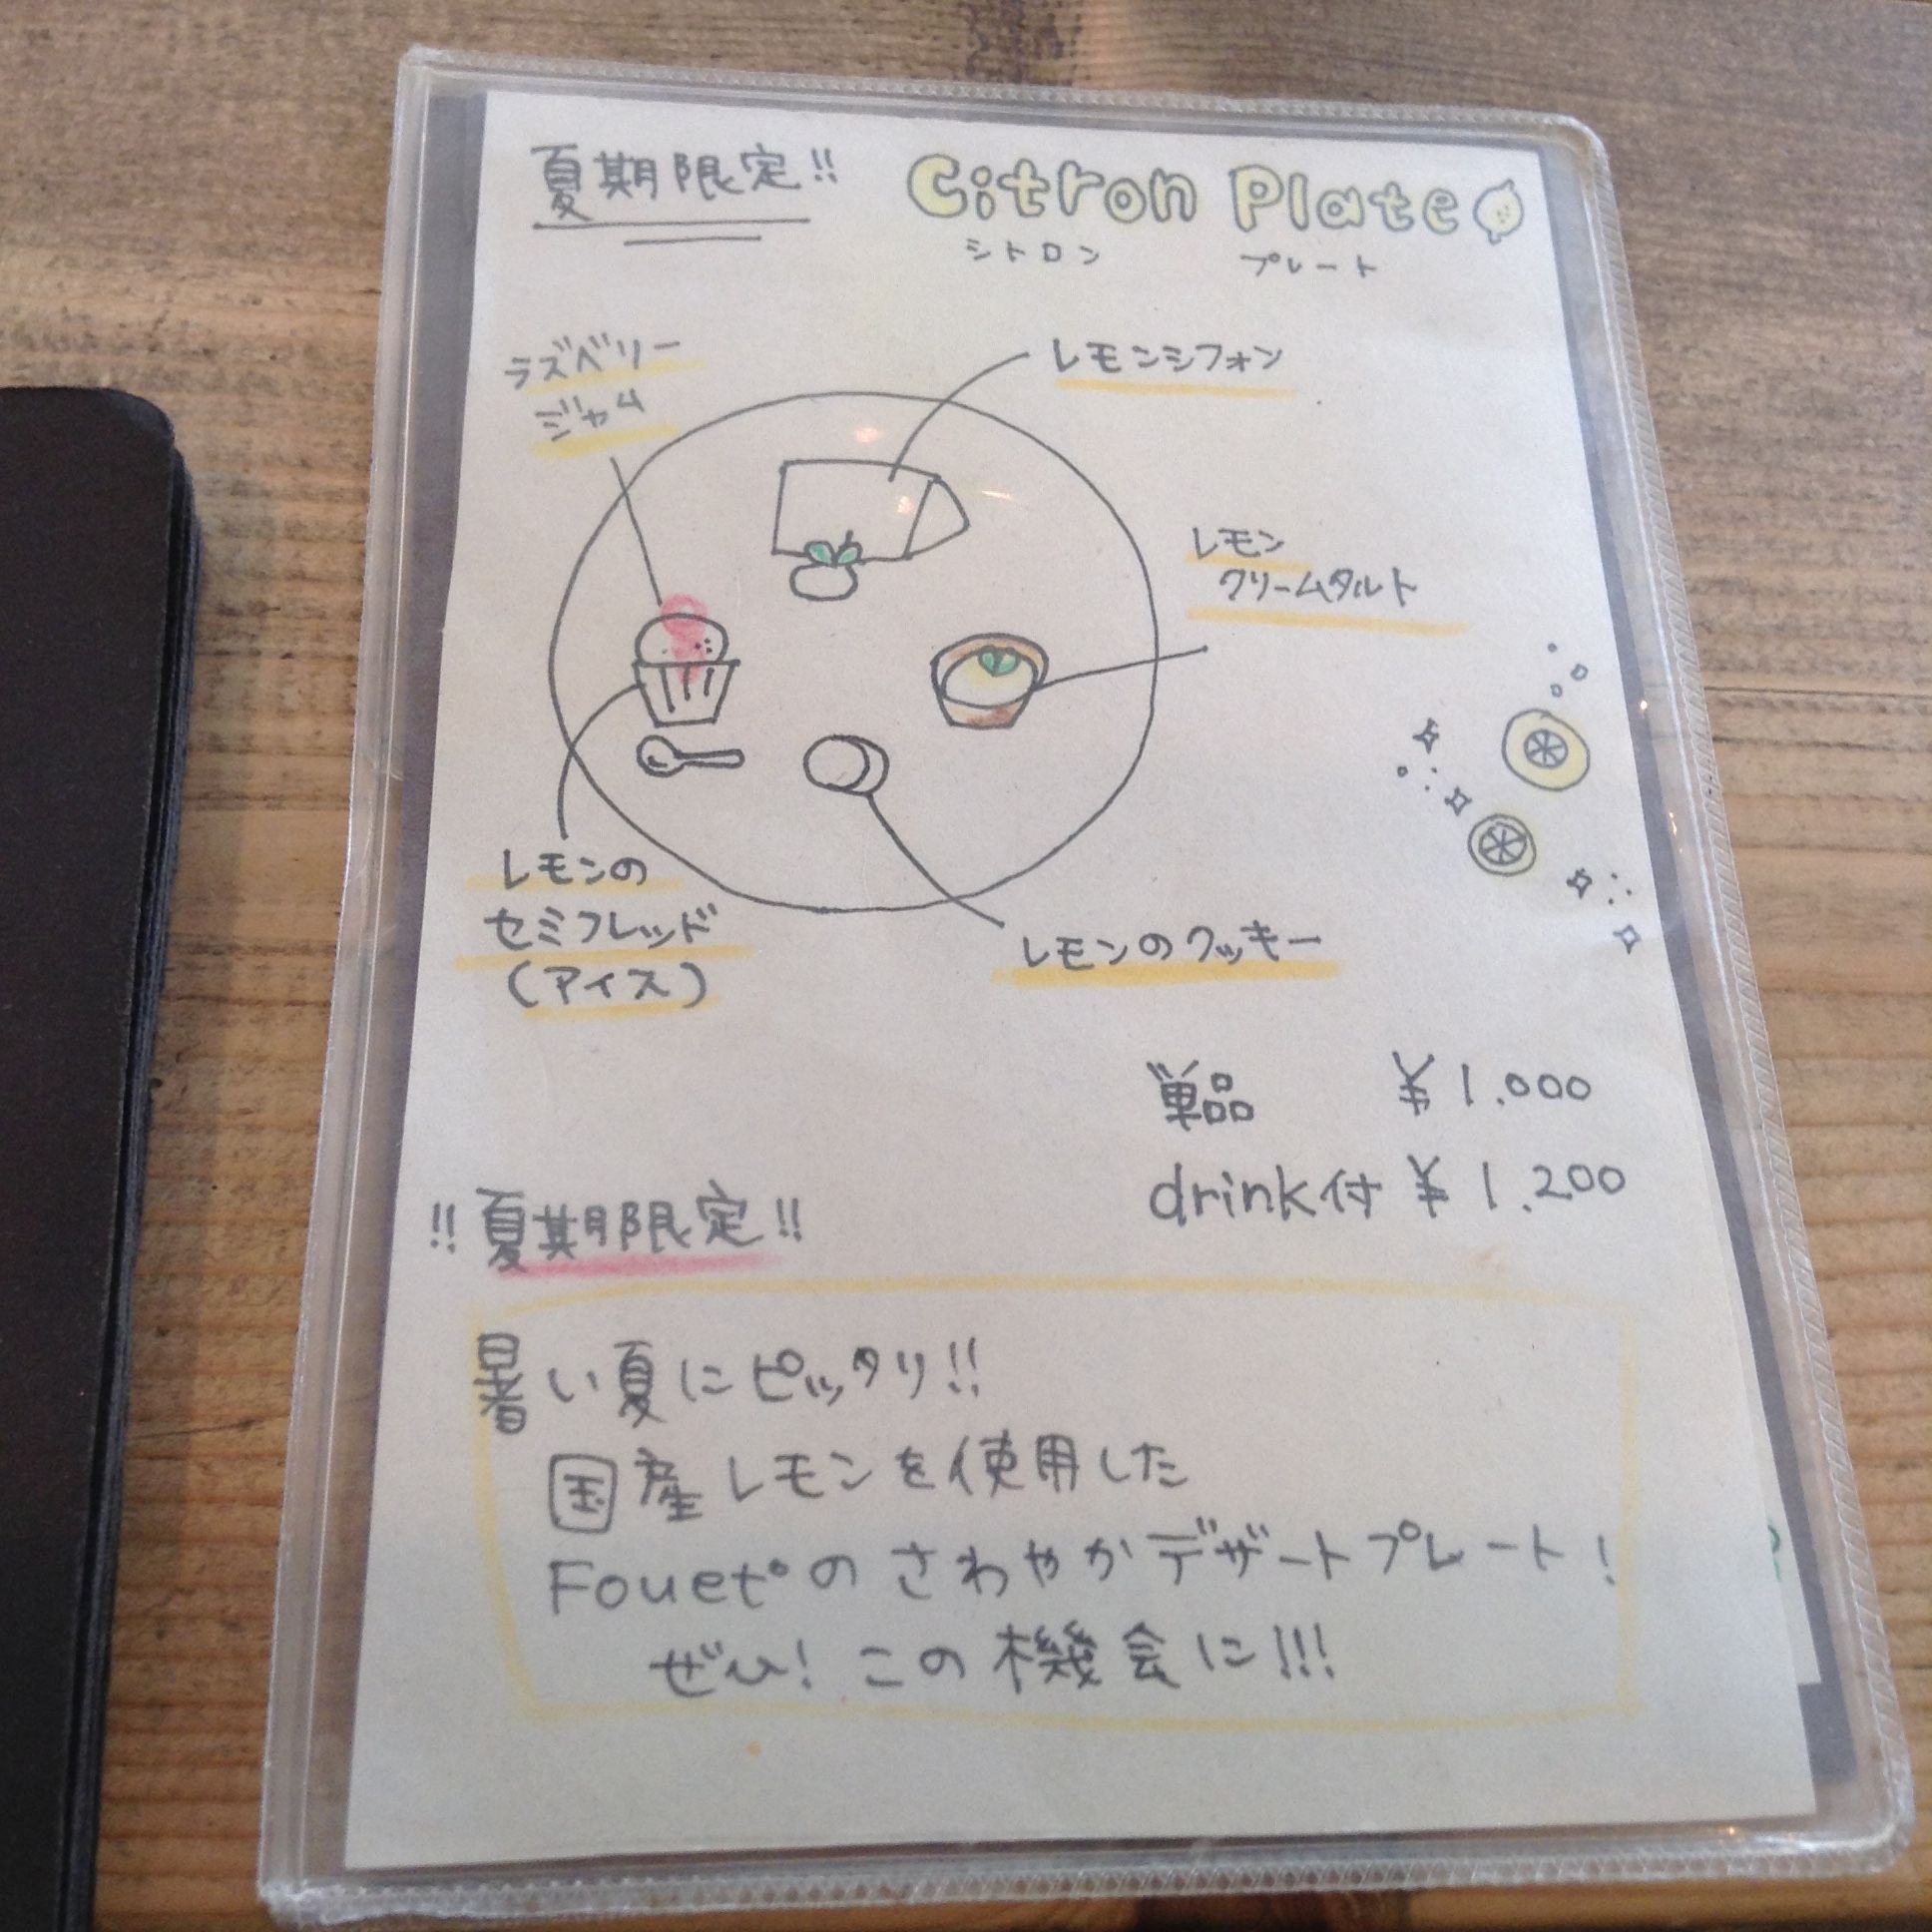 夏期限定!!
Citron Plate
シトロン プレート
ラズベリー
ジャム
レモンシフォン
レモン
クリームタルト
レモンの
セミフレッド
(アイス)
レモンのクッキー
単品 ¥1.000
drink付 ¥1.200
!!夏期限定!!
暑い夏にピッタリ!!
国産レモンを使用した
Fouet°のさわやかデザートプレート!
ぜひ!この機会に!!!